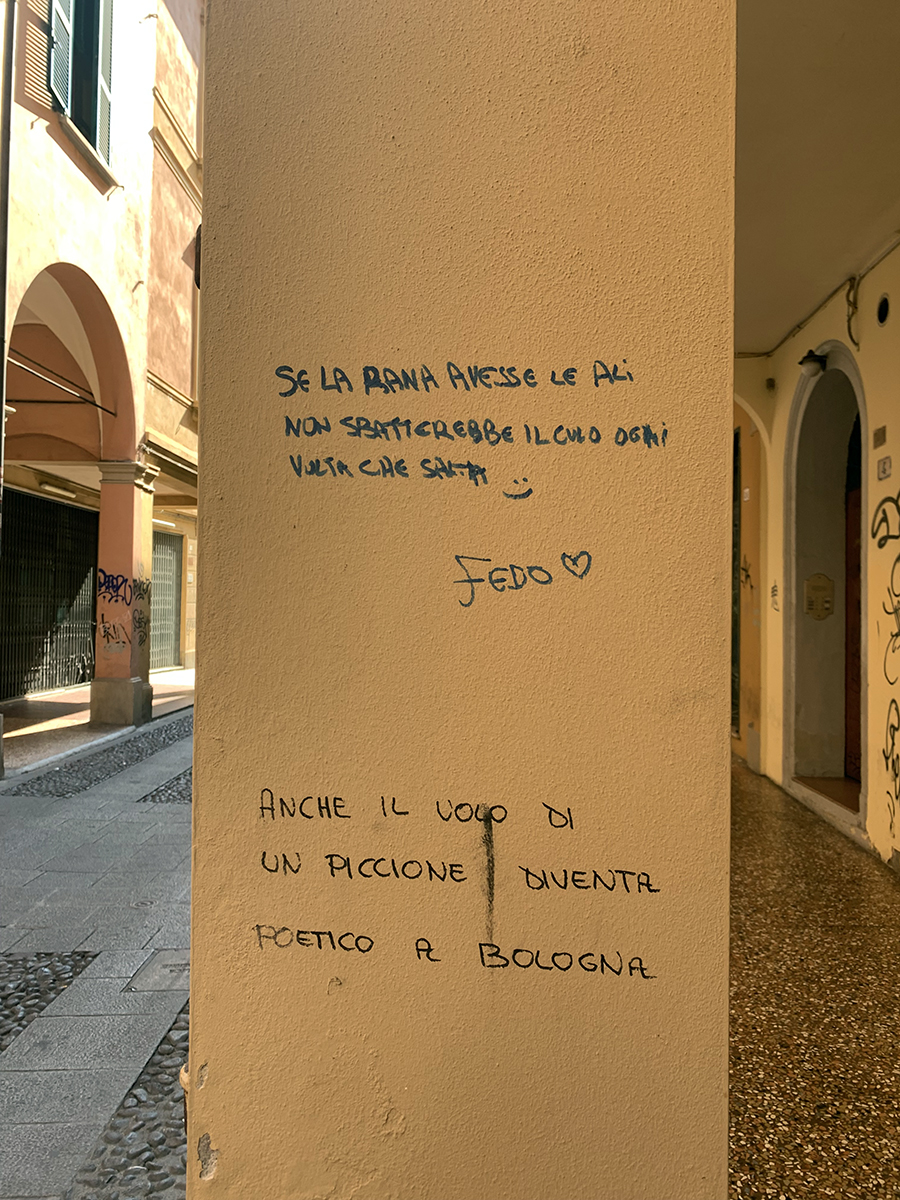 SE LA RANA AVESSE LE ALi
NON SBATTEREBBE IL CULO OGNi
VOLTA CHE SALTA
FEDO
ANCHE IL VOLO DI
UN PICCIONE DIVENTA
POETICO A BOLOGNA